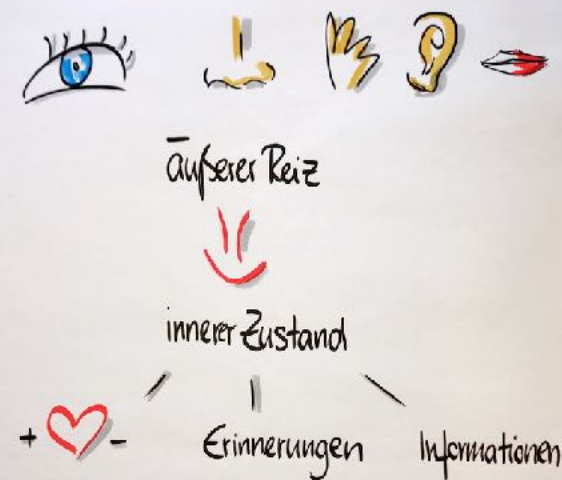 äußerer Reiz
innerer Zustand
+ -
Erinnerungen
Informationen